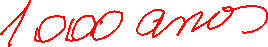 1000 anos